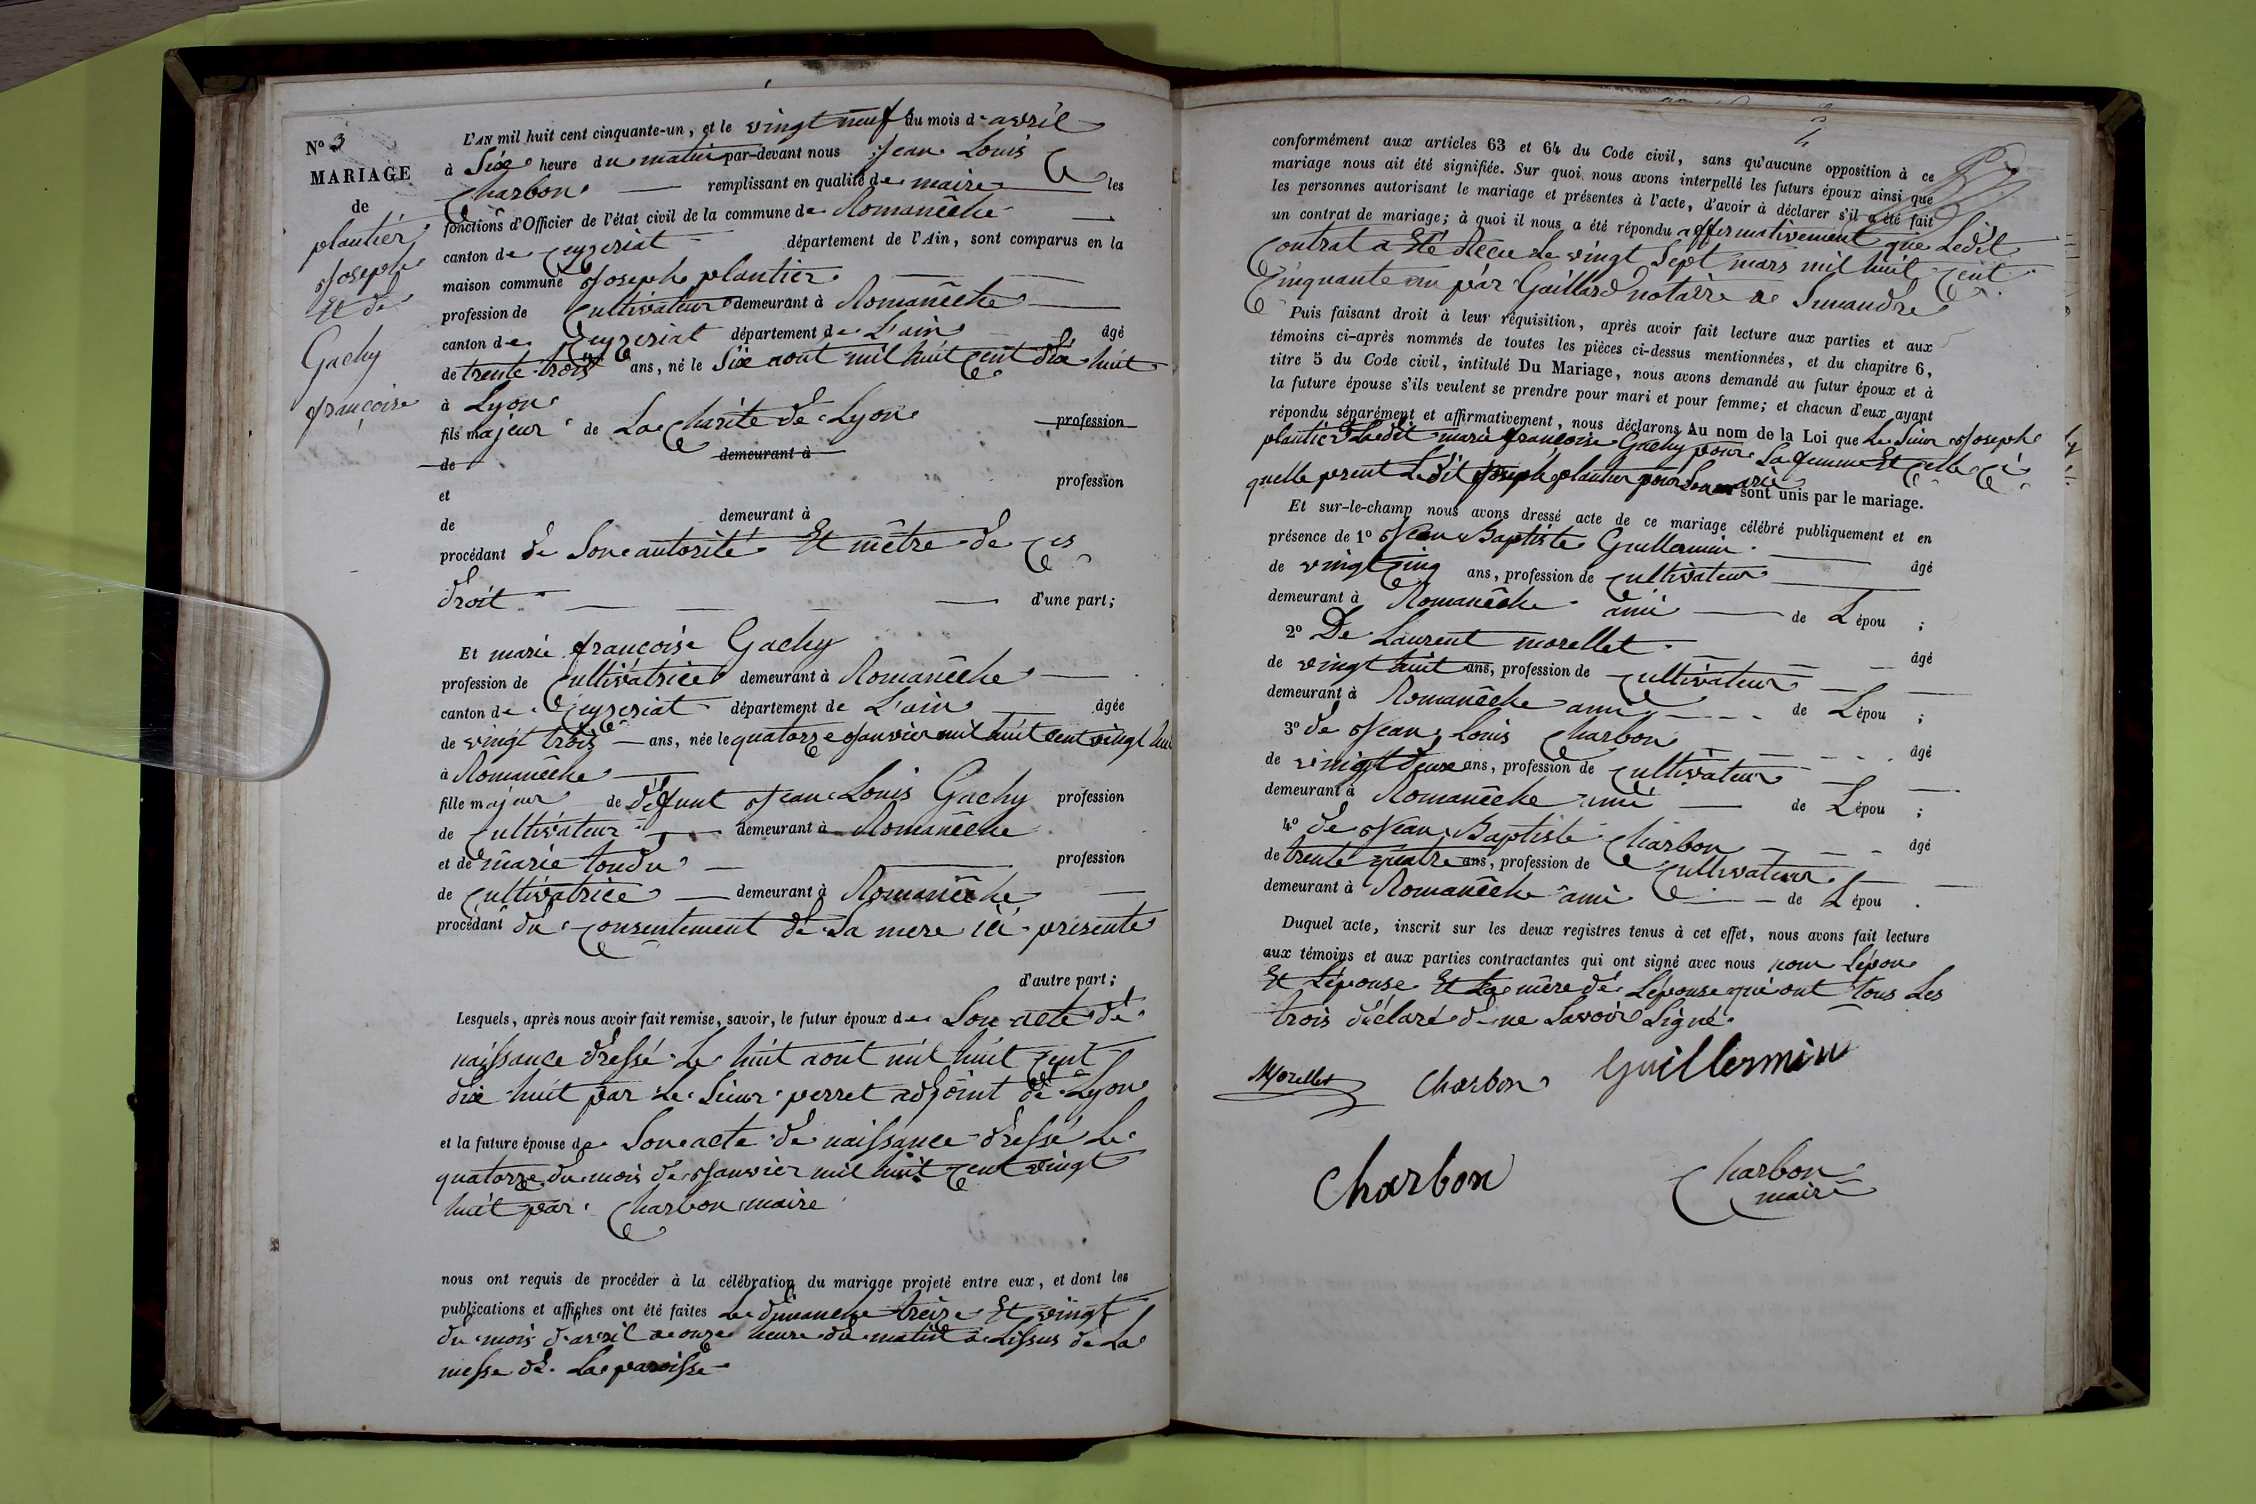 N° 3
MARIAGE
de
plantier
Joseph
Et de
Gachy
françoise
L'AN mil huit cent cinquante-un, et le vingt neuf du mois d'avril
à Six heure du matin par-devant nous Jean Louis
Charbon remplissant en qualité de maire les
fonctions d'Officier de l'état civil de la commune de Romanêche
canton de Ceyzeriat département de l'Ain, sont comparus en la
maison commune Joseph plantier
profession de Cultivateur demeurant à Romanêche
canton de Ceyzeriat département de L'ain âgé
de trente trois ans, né le Six aout mil huit Cent dix huit
à Lyon
fils majeur de La Charité de Lyon profession
de demeurant à
et profession
de demeurant à
procédant de Son autorité Et mêtre de Ces
droit d'une part;
Et marie françoise Gachy
profession de Cultivatrice demeurant à Romanêche
canton de Ceyzeriat département de L'ain âgée
de vingt trois ans, née le quatorze Janvier mil huit cent vingt huit
à Romanêche
fille majeur de défunt Jean Louis Gachy profession
de Cultivateur demeurant à Romanêche
et de marie tondu profession
de Cultivatrice demeurant à Romanêche
procédant du Consentement de Sa mere ici présente
d'autre part;
Lesquels, après nous avoir fait remise, savoir, le futur époux de Son acte de
naissance dressé Le huit aout mil huit Cent
dix huit par Le Sieur perret adjoint de Lyon
et la future épouse de Son acte de naissance dressé Le
quatorze du mois de Janvier mil huit Cent vingt
huit par Charbon maire
nous ont requis de procéder à la célébration du mariage projeté entre eux, et dont les
publications et affiches ont été faites Le dimanche treize Et vingt
du mois d'avril a onze heure du matin a Lissus de La
messe de La paroisse
4
conformément aux articles 63 et 64 du Code civil, sans qu'aucune opposition à ce
mariage nous ait été signifiée. Sur quoi nous avons interpellé les futurs époux ainsi que
les personnes autorisant le mariage et présentes à l'acte, d'avoir à déclarer s'il a été fait
un contrat de mariage; à quoi il nous a été répondu affirmativement que Ledit
Contrat a Eté Réçu Le vingt Sept mars mil huit Cent
Cinquante un par Gaillard notaire a Simandre
Puis faisant droit à leur réquisition, après avoir fait lecture aux parties et aux
témoins ci-après nommés de toutes les pièces ci-dessus mentionnées, et du chapitre 6,
titre 5 du Code civil, intitulé Du Mariage, nous avons demandé au futur époux et à
la future épouse s'ils veulent se prendre pour mari et pour femme; et chacun d'eux ayant
répondu séparément et affirmativement, nous déclarons Au nom de la Loi que Le Sieur Joseph
plantier Ladit marie françoise Gachy pour Sa femme Et Celle Ci
quelle prent Ledit Joseph plantier pour Son mari sont unis par le mariage.
Et sur-le-champ nous avons dressé acte de ce mariage célébré publiquement et en
présence de 1° Jean Baptiste Guillermin âgé
de vingt Cinq ans, profession de Cultivateur
demeurant à Romanêche ami de L'épou ;
2° De Laurent morellet âgé
de vingt huit ans, profession de Cultivateur
demeurant à Romanêche ami de L'épou ;
3° de Jean Louis Charbon âgé
de vingt deux ans, profession de Cultivateur
demeurant à Romanêche ami de L'épou ;
4° de Jean Baptiste Charbon âgé
de trente quatre ans, profession de Cultivateur
demeurant à Romanêche ami de L'épou .
Duquel acte, inscrit sur les deux registres tenus à cet effet, nous avons fait lecture
aux témoins et aux parties contractantes qui ont signé avec nous non Lépou
Et Lépouse Et La mère de Lépouse qui ont tous Les
trois déclaré de ne Savoir Signé.
Morellet Charbon Guillermin
Charbon Charbon
maire